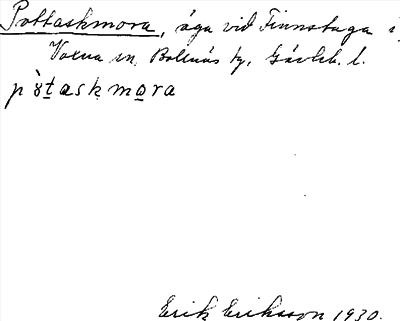 Pottaskmora, äga vid Finnstuga i
Voxna sn, Bollnäs tg, Gävleb. l.
pòtaskmora
Erik Eriksson 1930.